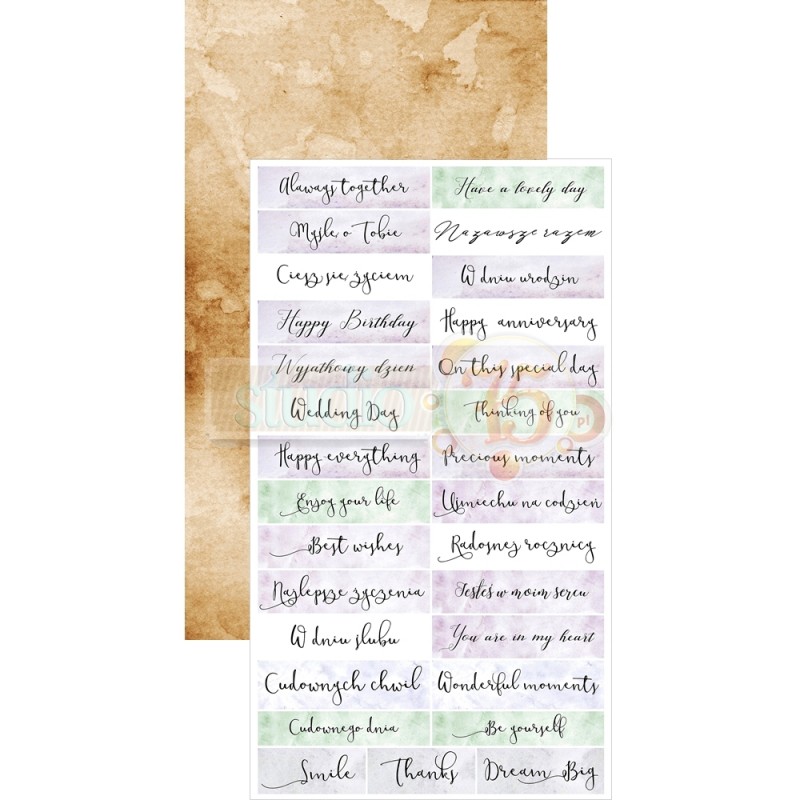 Alaways together
Have a lovely day
Myśle o Tobie
Nazawsze razem
Ciesz sie życiem
W dniu urodzin
Happy Birthday
Happy anniversary
Wyjatkowy dzien
On this special day
Wedding Day
Thinking of you
Happy everything
Precious moments
Enjoy your life
Uśmiechu na codzień
Best wishes
Radosnej rocznicy
Najlepsze życzenia
Jesteś w moim sercu
W dniu ślubu
You are in my heart
Cudownych chwil
Wonderful moments
Cudownego dnia
Be yourself
Smile
Thanks
Dream Big
studio 75 pl